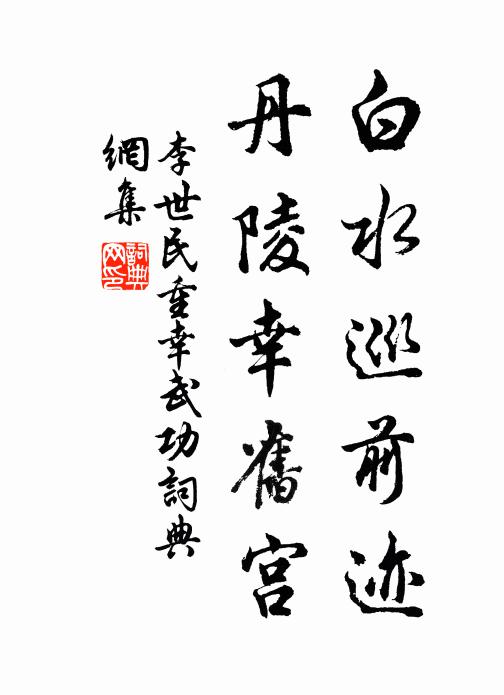 白水巡前迹
丹陵幸舊宫
李世民重幸武功詞典
網集
詞典网印